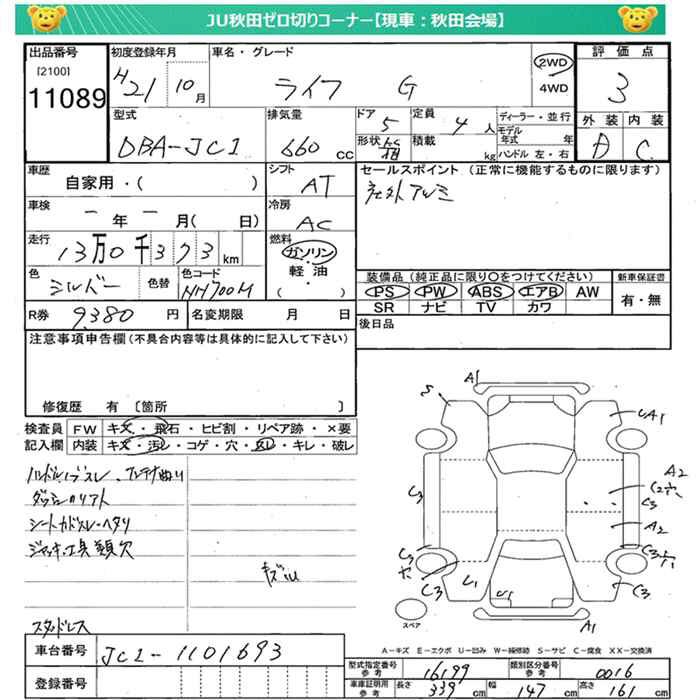 JU秋田ゼロ切りコーナー【現車：秋田会場】
出品番号
[2100]
11089
初度登録年月
H21 10月
車名・グレード
ライフ G
2WD
4WD
評価点
3
型式
DBA-JC1
排気量
660 cc
ドア
5
定員
4人
形状
積載
kg
ディーラー・並行
モデル年式 年
ハンドル 左・右
外装 内装
A C
車歴
自家用・( )
シフト
AT
セールスポイント (正常に機能するものに限ります)
社外アルミ
車検
ー年ー月( 日)
冷房
AC
走行
13万0千373km
燃料
ガソリン
軽油
( )
色
シルバー
色替
色コード
NH700M
装備品 (純正品に限り○をつけてください)
PS PW ABS エアB AW
SR ナビ TV カワ
新車保証書
有・無
R券 9,380円
名変期限 月 日
後日品
注意事項申告欄 (不具合内容等は具体的に記入して下さい)
修復歴 有 〔箇所 〕
検査員
記入欄
FW キズ・飛石・ヒビ割・リペア跡・×要
内装 キズ・汚レ・コゲ・穴・スレ・キレ・破レ
シートカドスレ・ヘタリ
ジャッキ、工具類欠
キズU
スタッドレス
S
A1
UA1
A2
C2穴
C3
A2
C3
C3
穴
C3穴
C3
C3
U1
U1
A1
スペア
A-キズ E-エクボ U-凹み W-補修跡 S-サビ C-腐食 XX-交換済
車台番号
JC1-1101693
登録番号
型式指定番号
参考
16199
類別区分番号
参考
0016
車庫証明用
参考
長さ 339cm
幅 147cm
高さ 161cm